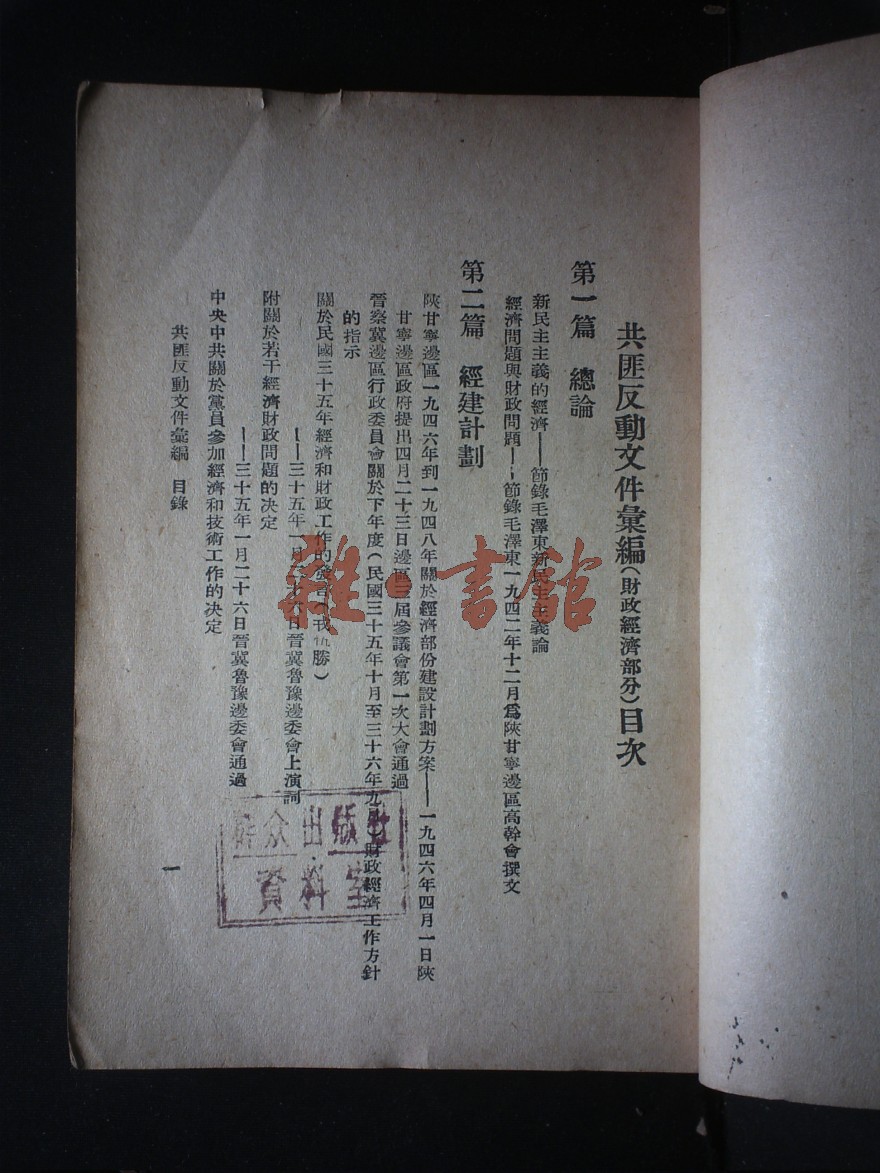 共匪反動文件彙編(財政經濟部分)目次
第一篇 總論
新民主主義的經濟——節錄毛澤東新民主主義論
經濟問題與財政問題——節錄毛澤東一九四二年十二月爲陝甘寧邊區高幹會撰文
第二篇 經建計劃
陝甘寧邊區一九四六年到一九四八年關於經濟部份建設計劃方案——一九四六年四月一日陝
甘寧邊區政府提出四月二十三日邊區三屆參議會第一次大會通過
晉察冀邊區行政委員會關於下年度(民國三十五年十月至三十六年九月)財政經濟工作方針
的指示
關於民國三十五年經濟和財政工作的發言(戎伍勝)
——三十五年一月二十六日晉冀魯豫邊委會上演詞
附關於若干經濟財政問題的决定
——三十五年一月二十六日晉冀魯豫邊委會通過
中央中共關於黨員參加經濟和技術工作的决定
共匪反動文件彙編 目錄
一
雜·書館
群众出版社
資料室